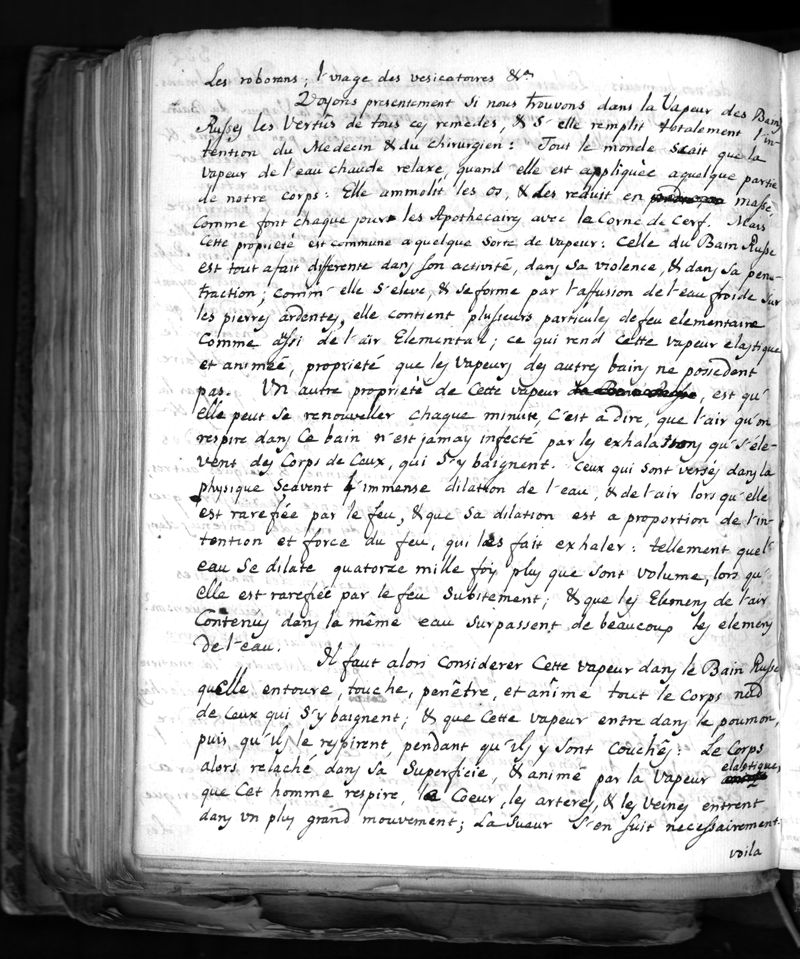 Les roborans; l'usage des vesicatoires &ca
Voyons presentement si nous trouvons dans la Vapeur des Bains
Russes les Vertûs de tous ces remedes, & s'elle remplit totalement l'in-
tention du Medecin & du chirurgien: Tout le monde scait que la
vapeur de l'eau chaude relaxe, quand elle est appliquèe a quelque partie
de notre corps: Elle ammolit les os, & les reduit en masse,
Comme font chaque jour les Apothecaires avec la Corne de Cerf. Mais
Cette proprieté est commune a quelque sorte de vapeur: Celle du Bain Russe
est tout afait differente dans son activité, dans sa violence, & dans sa pene-
traction; comm' elle s'eleve, & se forme par l'affusion de l'eau froide sur
les pierres ardentes, elle contient plusieurs particules de feu elementaire
Comme assi de l'air Elemental; ce qui rend Cette vapeur elastique
et animeé, proprieté que les Vapeurs des autres bains ne possedent
pas. UN autre proprieté de Cette vapeur, est qu'
elle peut se renouveller chaque minute, C'est a dire, que l'air qu'on
respire dans Ce bain n'est jamay infecté par les exhalations qu's'éle-
vent des Corps de Ceux, qui s'y baignent. Ceux qui sont versés dans la
physique Sçavent l'immense dilation de l'eau, & de l'air lors qu'elle
est rarefiée par le feu, & que sa dilation est a proportion de l'in-
tention et force du feu, qui les fait exhaler: tellement que l'
eau se dilate quatorze mille fois plus que sont volume, lors qu'
elle est rarefiée par le feu subitement; & que les Elemens de l'air
Contenus dans la même eau surpassent de beaucoup les elemens
de l'eau.
Il faut alors Considerer Cette vapeur dans le Bain Russe
quelle entoure, touche, penêtre, et anîme tout le Corps nud
de Ceux qui s'y baignent; & que Cette vapeur entre dans le poumon,
puis qu'ils le respirent, pendant qu'ils y sont couchês: Le Corps
alors relaché dans sa Superficie, & animé par la vapeur elastique,
que Cet homme respire, le Coeur, les arteres, & les veines entrent
dans un plus grand mouvement; La sueur s'en suit necessairement
voila